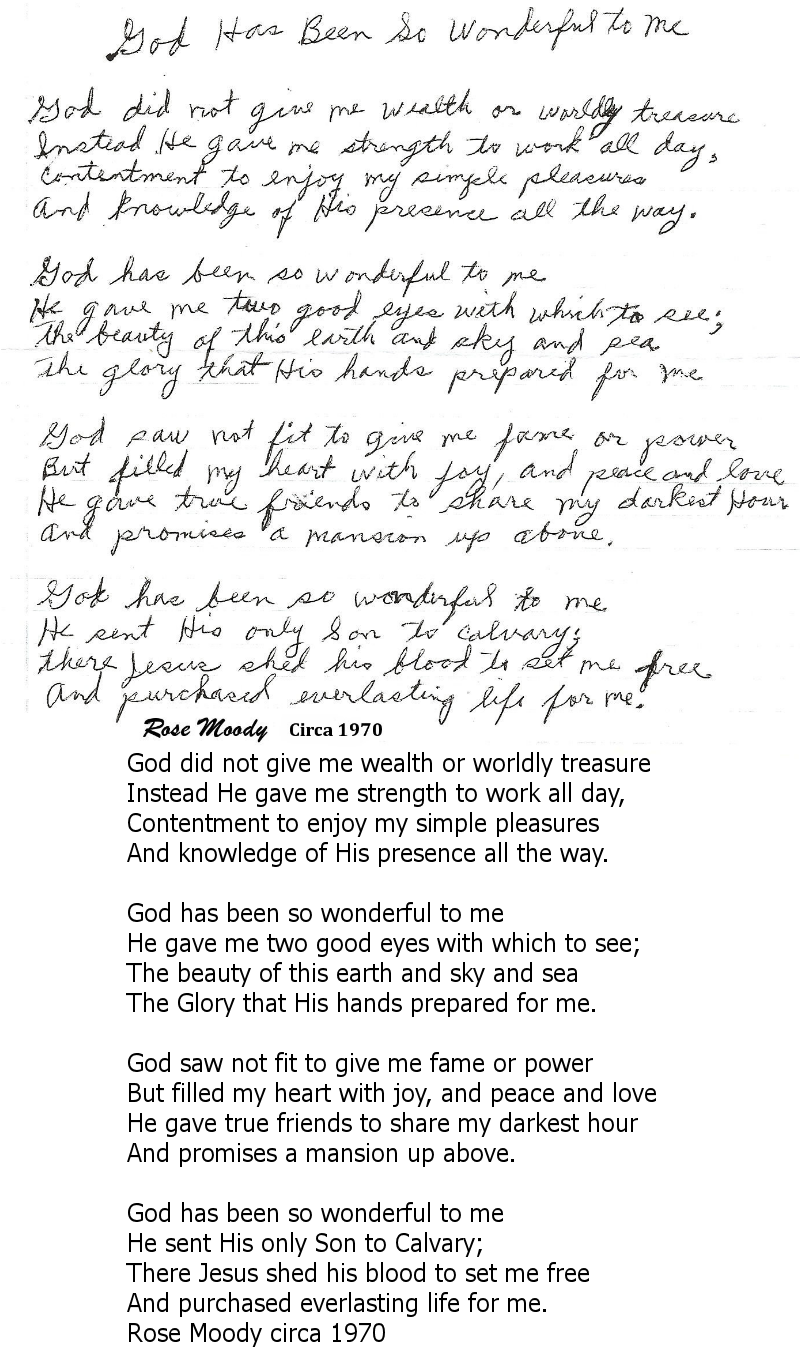 God Has Been So Wonderful to me
God did not give me wealth or worldly treasure
Instead He gave me strength to work all day,
Contentment to enjoy my simple pleasures
And knowledge of His presence all the way.
God has been so wonderful to me
He gave me two good eyes with which to see;
The beauty of this earth and sky and sea
The glory that His hands prepared for me
God saw not fit to give me fame or power
But filled my heart with joy, and peace and love
He gave true friends to share my darkest Hour
And promises a mansion up above.
God has been so wonderful to me
He sent His only Son to Calvary;
there Jesus shed his blood to set me free
And purchased everlasting life for me.
Rose Moody Circa 1970
God did not give me wealth or worldly treasure
Instead He gave me strength to work all day,
Contentment to enjoy my simple pleasures
And knowledge of His presence all the way.
God has been so wonderful to me
He gave me two good eyes with which to see;
The beauty of this earth and sky and sea
The Glory that His hands prepared for me.
God saw not fit to give me fame or power
But filled my heart with joy, and peace and love
He gave true friends to share my darkest hour
And promises a mansion up above.
God has been so wonderful to me
He sent His only Son to Calvary;
There Jesus shed his blood to set me free
And purchased everlasting life for me.
Rose Moody circa 1970